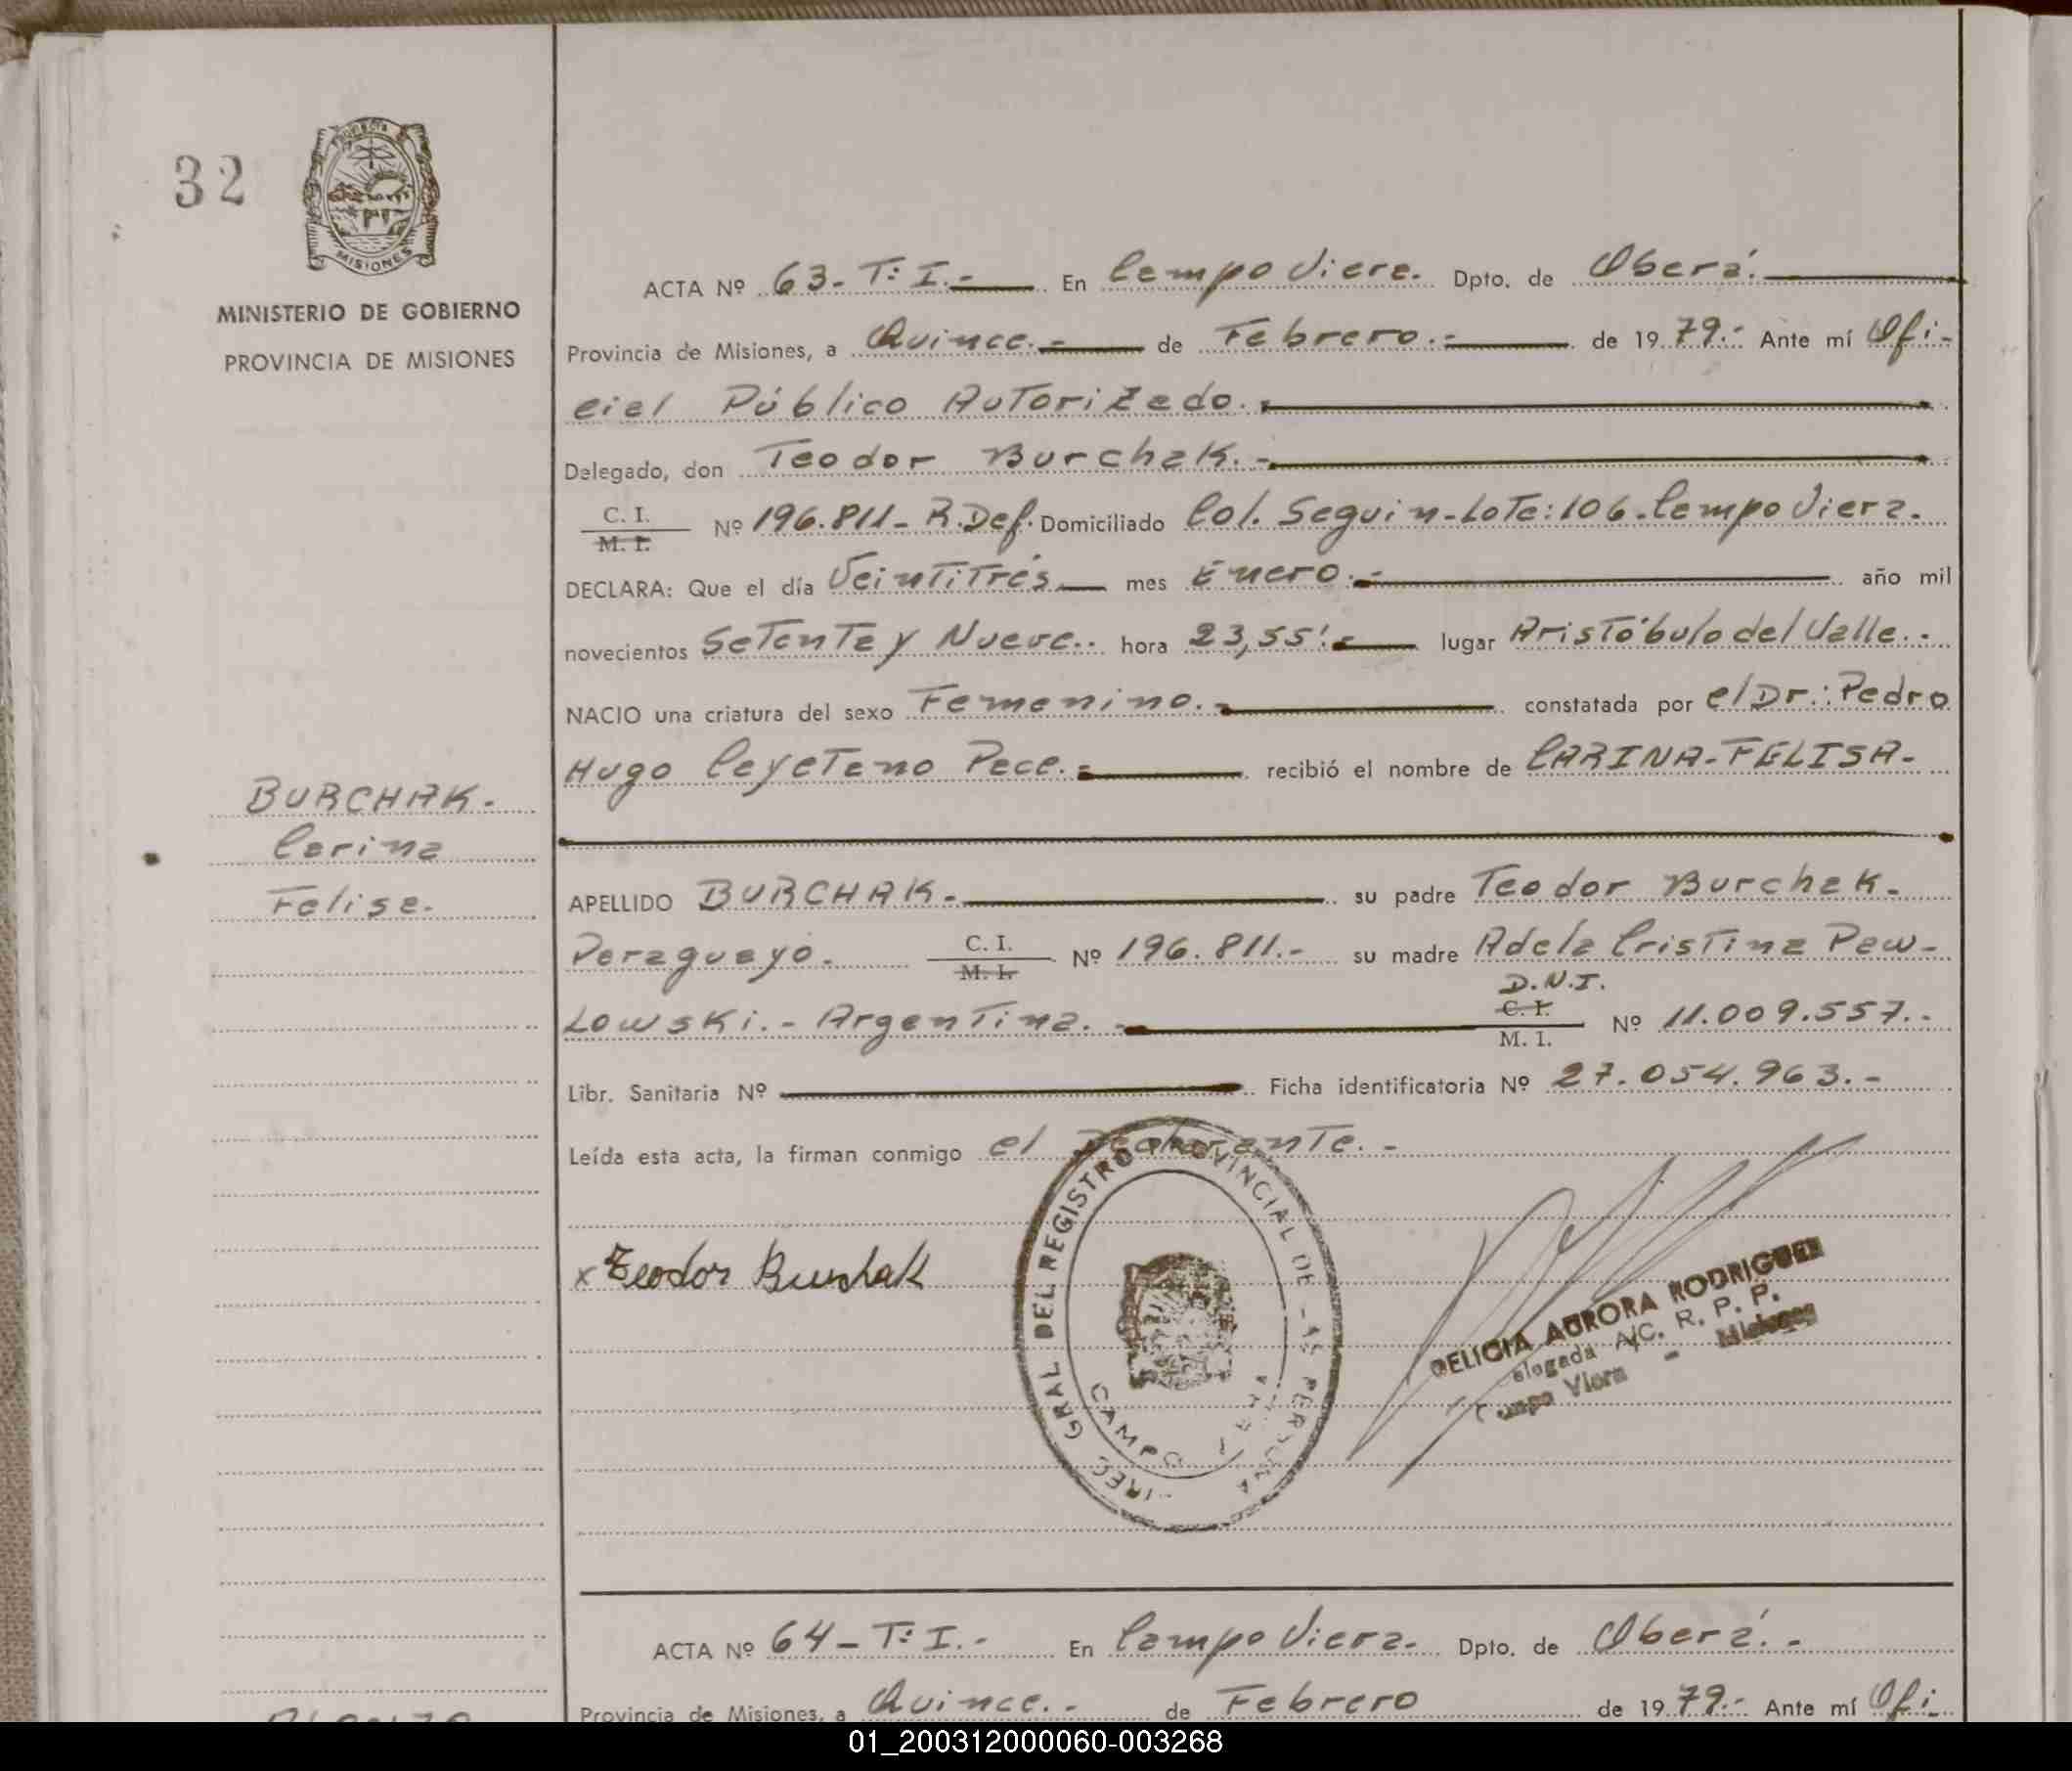 32
MISIONES
MINISTERIO DE GOBIERNO
PROVINCIA DE MISIONES
ACTA Nº 63- T: I.- En Campo Viera. Dpto. de Oberá.
Provincia de Misiones, a Quince.- de Febrero.- de 1979.- Ante mí Ofi-
cial Público Autorizado.
Delegado, don Teodor Burchak.-
C. I.
M. I.
Nº 196.811- R.Def. Domiciliado Col. Seguin-Lote:106.Campo Viera.
DECLARA: Que el día Veintitrés mes Enero.- año mil
novecientos Setenta y Nueve.. hora 23,55'.- lugar Aristóbulo del Valle.-
NACIO una criatura del sexo Femenino.- constatada por el Dr.: Pedro
Hugo Cayetano Pece.- recibió el nombre de CARINA-FELISA-
BURCHAK.
Carina
Felisa.
APELLIDO BURCHAK.- su padre Teodor Burchak.
Paraguayo.- C. I.
M. I.
Nº 196.811.- su madre Adela Cristina Paw-
lowski.- Argentina.- D.N.I.
C. I.
M. I.
Nº 11.009.557.-
Libr. Sanitaria Nº Ficha identificatoria Nº 27.054.963.-
Leída esta acta, la firman conmigo el Declarante.-
x Teodor Burchak
DIREC. GRAL DEL REGISTRO PROVINCIAL DE LAS PERSONAS
CAMPO VIERA
DELICIA AURORA RODRIGUEZ
Delegada A/C. R. P. P.
Campo Viera - Misiones
ACTA Nº 64- T: I.- En Campo Viera. Dpto. de Oberá.-
Provincia de Misiones, a Quince.- de Febrero de 1979.- Ante mí Ofi-
01_200312000060-003268